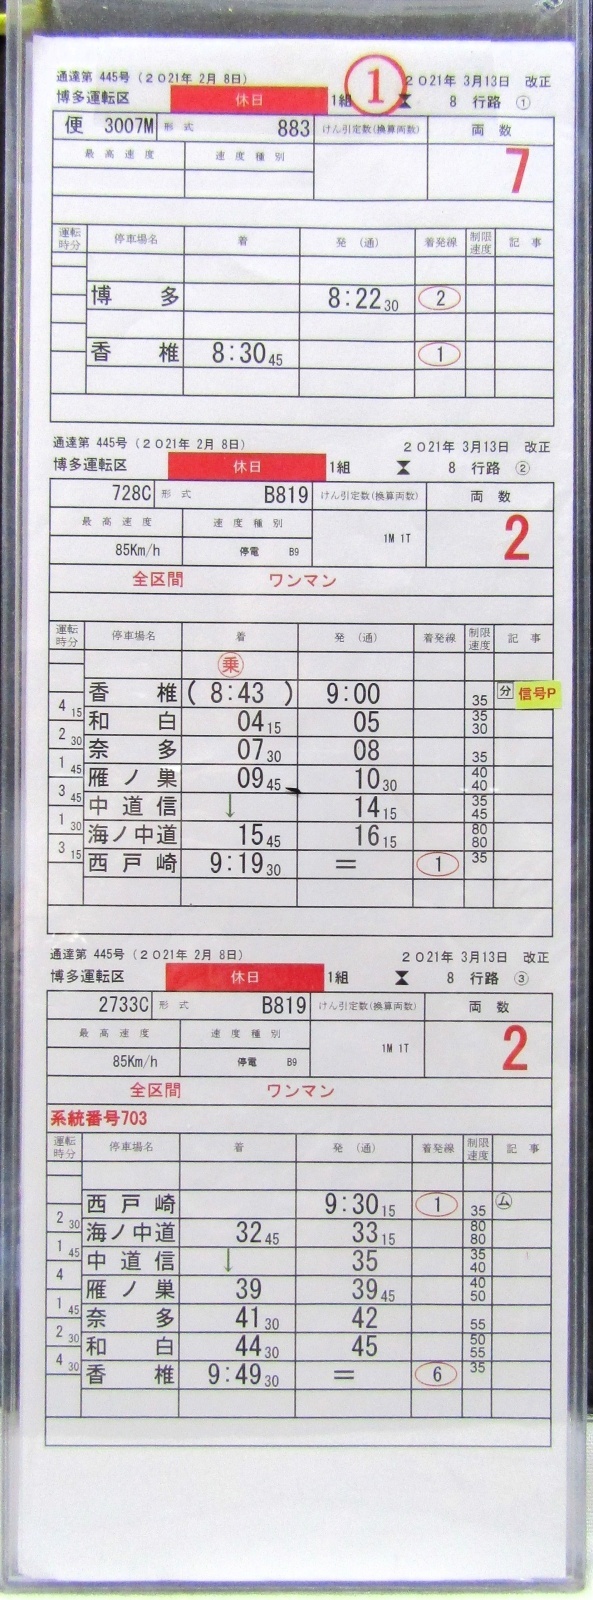 通達第 445号(2021年 2月 8日) ① 2021年 3月13日 改正
博多運転区 休日 1組 8 行路 ①
便 3007M 形式 883 けん引定数(換算両数) 両数
最高速度 速度種別 7
運転時分 停車場名 着 発(通) 着発線 制限速度 記事
博多 8:22 30 2
香椎 8:30 45 1
通達第 445号(2021年 2月 8日) 2021年 3月13日 改正
博多運転区 休日 1組 8 行路 ②
728C 形式 B819 けん引定数(換算両数) 両数
最高速度 速度種別 1M 1T 2
85Km/h 停電 B9
全区間 ワンマン
運転時分 停車場名 着 発(通) 着発線 制限速度 記事
乗
香椎 (8:43) 9:00 35 分 信号P
4 15
和白 04 15 05 35 30
2 30
奈多 07 30 08 35
1 45
雁ノ巣 09 45 10 30 40 40
3 45
中道信 ↓ 14 15 35 45
1 30
海ノ中道 15 45 16 15 80 80
3 15
西戸崎 9:19 30 = 1 35
通達第 445号(2021年 2月 8日) 2021年 3月13日 改正
博多運転区 休日 1組 8 行路 ③
2733C 形式 B819 けん引定数(換算両数) 両数
最高速度 速度種別 1M 1T 2
85Km/h 停電 B9
全区間 ワンマン
系統番号703
運転時分 停車場名 着 発(通) 着発線 制限速度 記事
西戸崎 9:30 15 1 35 ム
2 30
海ノ中道 32 45 33 15 80 80
1 45
中道信 ↓ 35 35 40
4
雁ノ巣 39 39 45 40 50
1 45
奈多 41 30 42 55
2 30
和白 44 30 45 50 55
4 30
香椎 9:49 30 = 6 35